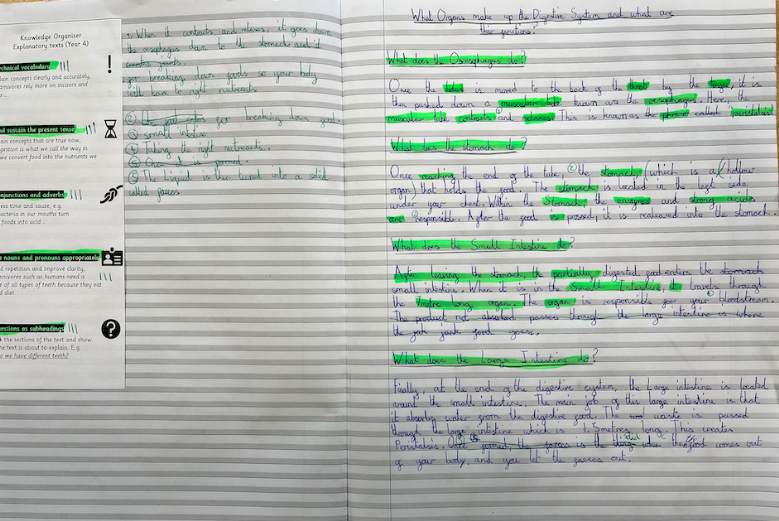 Knowledge Organiser
Explanatory texts (Year 4)
chnical vocabulary
ain concepts clearly and accurately,
arnivores rely more on incisors and
nd sustain the present tense
ain concepts that are true now,
gestion is what we call the way in
we convert food into the nutrients we
onjunctions and adverbs
ess time and cause, e.g.
bacteria in our mouths turn
foods into acid...
e nouns and pronouns appropriately
d repetition and improve clarity,
mnivores such as humans need a
e of all types of teeth because they eat
d diet.
estions as subheadings
the sections of the text and show
he text is about to explain. E.g.
o we have different teeth?
When it contracts and relaxes, it goes down
the esophagus down to the stomach and
for breaking down foods so your body
will have to right nutrients.
for breaking down food.
③ small intestine
④ Taking the right nutrients.
⑤ Once it is formed.
⑥ The liquid is then turnt into a solid
called faeces
What Organs make up the Digestive System and what are
their functions?
What does the Oesophagus do?
Once the bolus is moved to the back of the throat by the tongue, it is
then pushed down a muscular tube, known as the oesophagus. Here, the
muscular tube contracts and relaxes. This is known as the phrase called 'peristalsis'.
What does the stomach do?
Once reaching the end of the tube, the stomach (which is a hollow
organ) that holds the food. The stomach is located in the left side,
under your chest. Within the Stomach, the enzymes and strong acids
are responsible. After the food is passed, it is released into the stomach.
What does the Small Intestine do?
After leaving the stomach, the partially digested food enters the stomach
small intestine. When it is in the Small Intestine, it travels through
the long organ. The organ is responsible for your bloodstream.
The product not absorbed passes through the large intestine is where
the food goes.
What does the Large Intestine do?
Finally, at the end of the digestive system, the Large intestine is located
around the small intestine. The main job of this large intestine is that
it absorbs water from the digestive food. The waste is passed
through the large intestine which is 1.5 metres long. This creates
Peristalsis. Once formed, the faeces is the thing when the food comes out
of your body, and you let the faeces out.